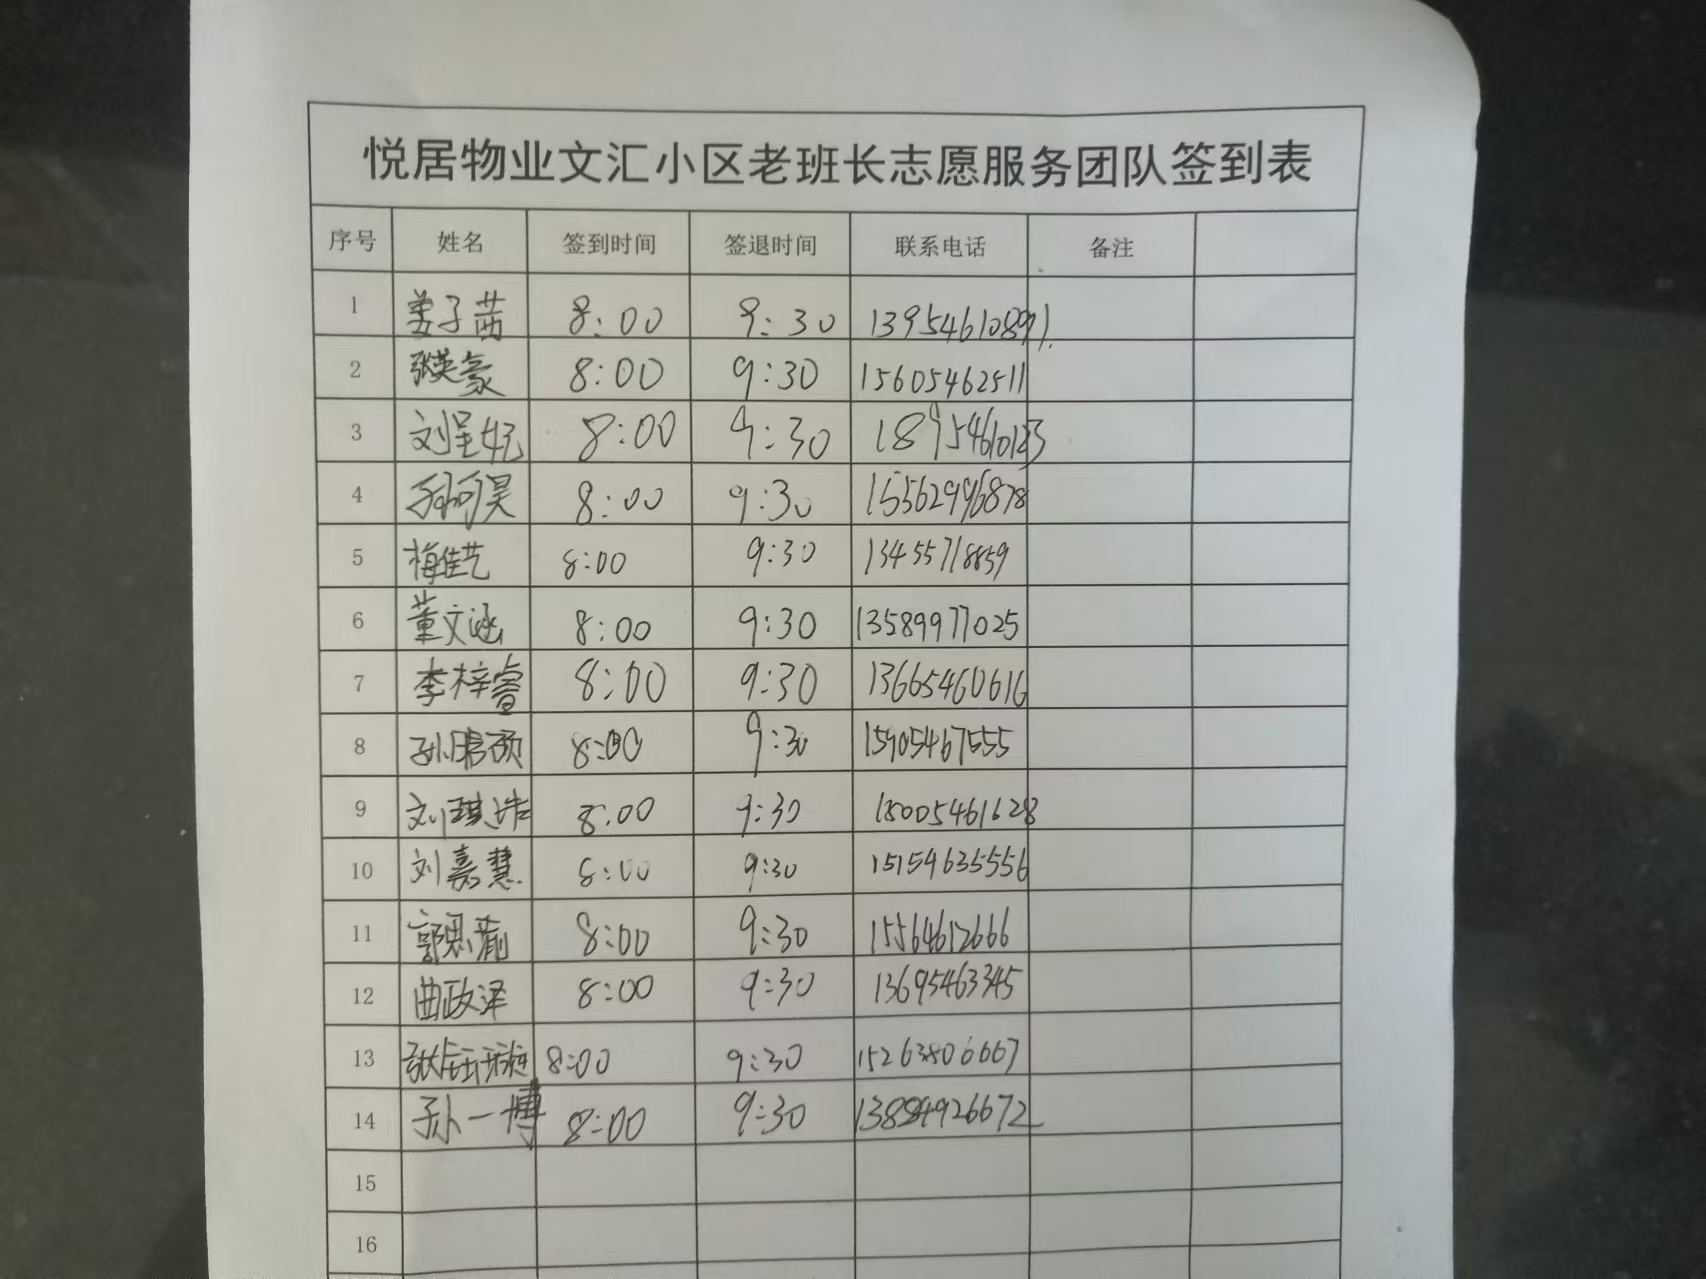 悦居物业文汇小区老班长志愿服务团队签到表
序号 姓名 签到时间 签退时间 联系电话 备注
1 姜子茜 8:00 9:30 13954610891
2 张英豪 8:00 9:30 15605462511
3 刘呈妧 8:00 9:30 18954610123
4 孙珂昊 8:00 9:30 15562996878
5 梅佳艺 8:00 9:30 13455718859
6 董文涵 8:00 9:30 13589977025
7 李梓睿 8:00 9:30 13665460616
8 8:00 9:30 15905467555
9 刘琪 8:00 9:30 18005461628
10 刘嘉慧 8:00 9:30 15154635556
11 郭思 8:00 9:30 15564612666
12 曲政泽 8:00 9:30 13695463345
13 8:00 9:30 15263806667
14 孙一博 8:00 9:30 13884926672
15
16